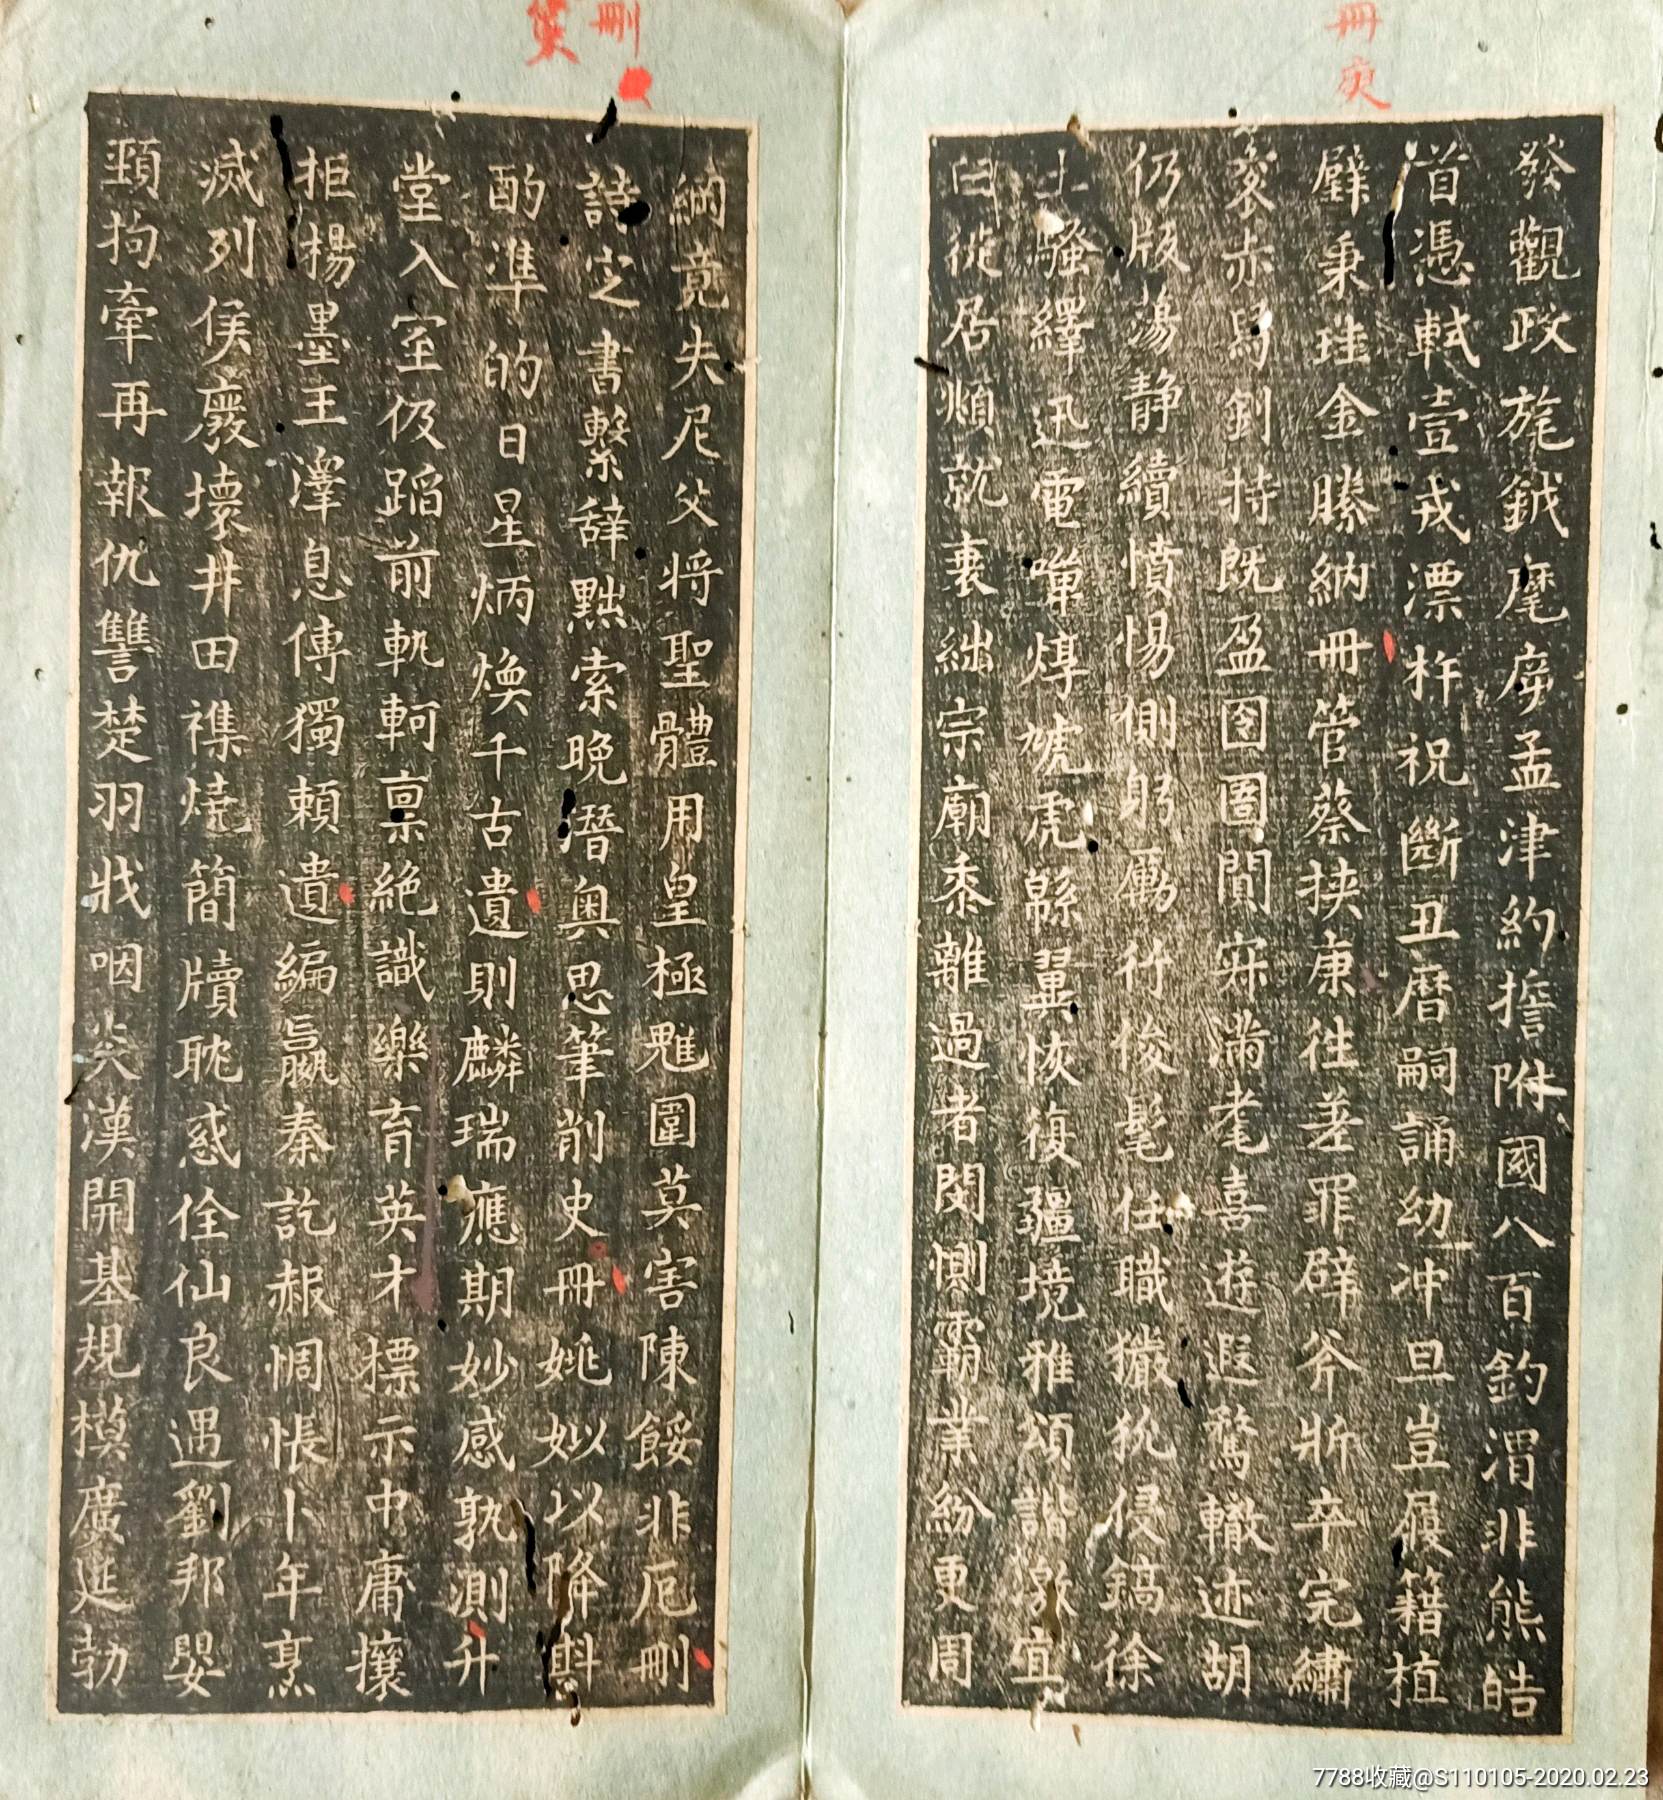 冊
發觀政旄鉞麾孟津約擔附國八百釣渭非熊皓
首憑軾壹戎漂杵祝斷丑曆嗣誦幼冲旦豈履籍植
璧秉珪金縢納冊管蔡挾康往差罪辟斧斨卒完繡
袞赤舄釗持既盈囹圄閴寂滿耄喜遊遐騖轍迹胡
仍版蕩静續憤惕側躬勵行俊髦任職玁狁侵鎬徐
土騷繹迅電嘽焞虓虎緜翼恢復疆境雅頌諧激宜
臼徙居頫就衷絀宗廟黍離過者閔惻霸業紛更周
刪
綱竟失尼父將聖體用皇極魋圍莫害陳餒非厄刪
詩定書繫辭黜索晚潛奥思筆削史冊姚姒以降斟
酌準的日星炳煥千古遺則麟瑞應期妙感孰測升
堂入室伋蹈前軌軻禀絶識樂育英才標示中庸攘
拒楊墨王澤息傳獨賴遺編嬴秦訖赧惆悵卜年烹
滅列侯廢壞井田襍燒簡牘耽惑佺仙良遇劉邦嬰
頸拘牽再報仇讐楚羽戕咽炎漢開基規模廣延勃
7788收藏@S110105-2020.02.23